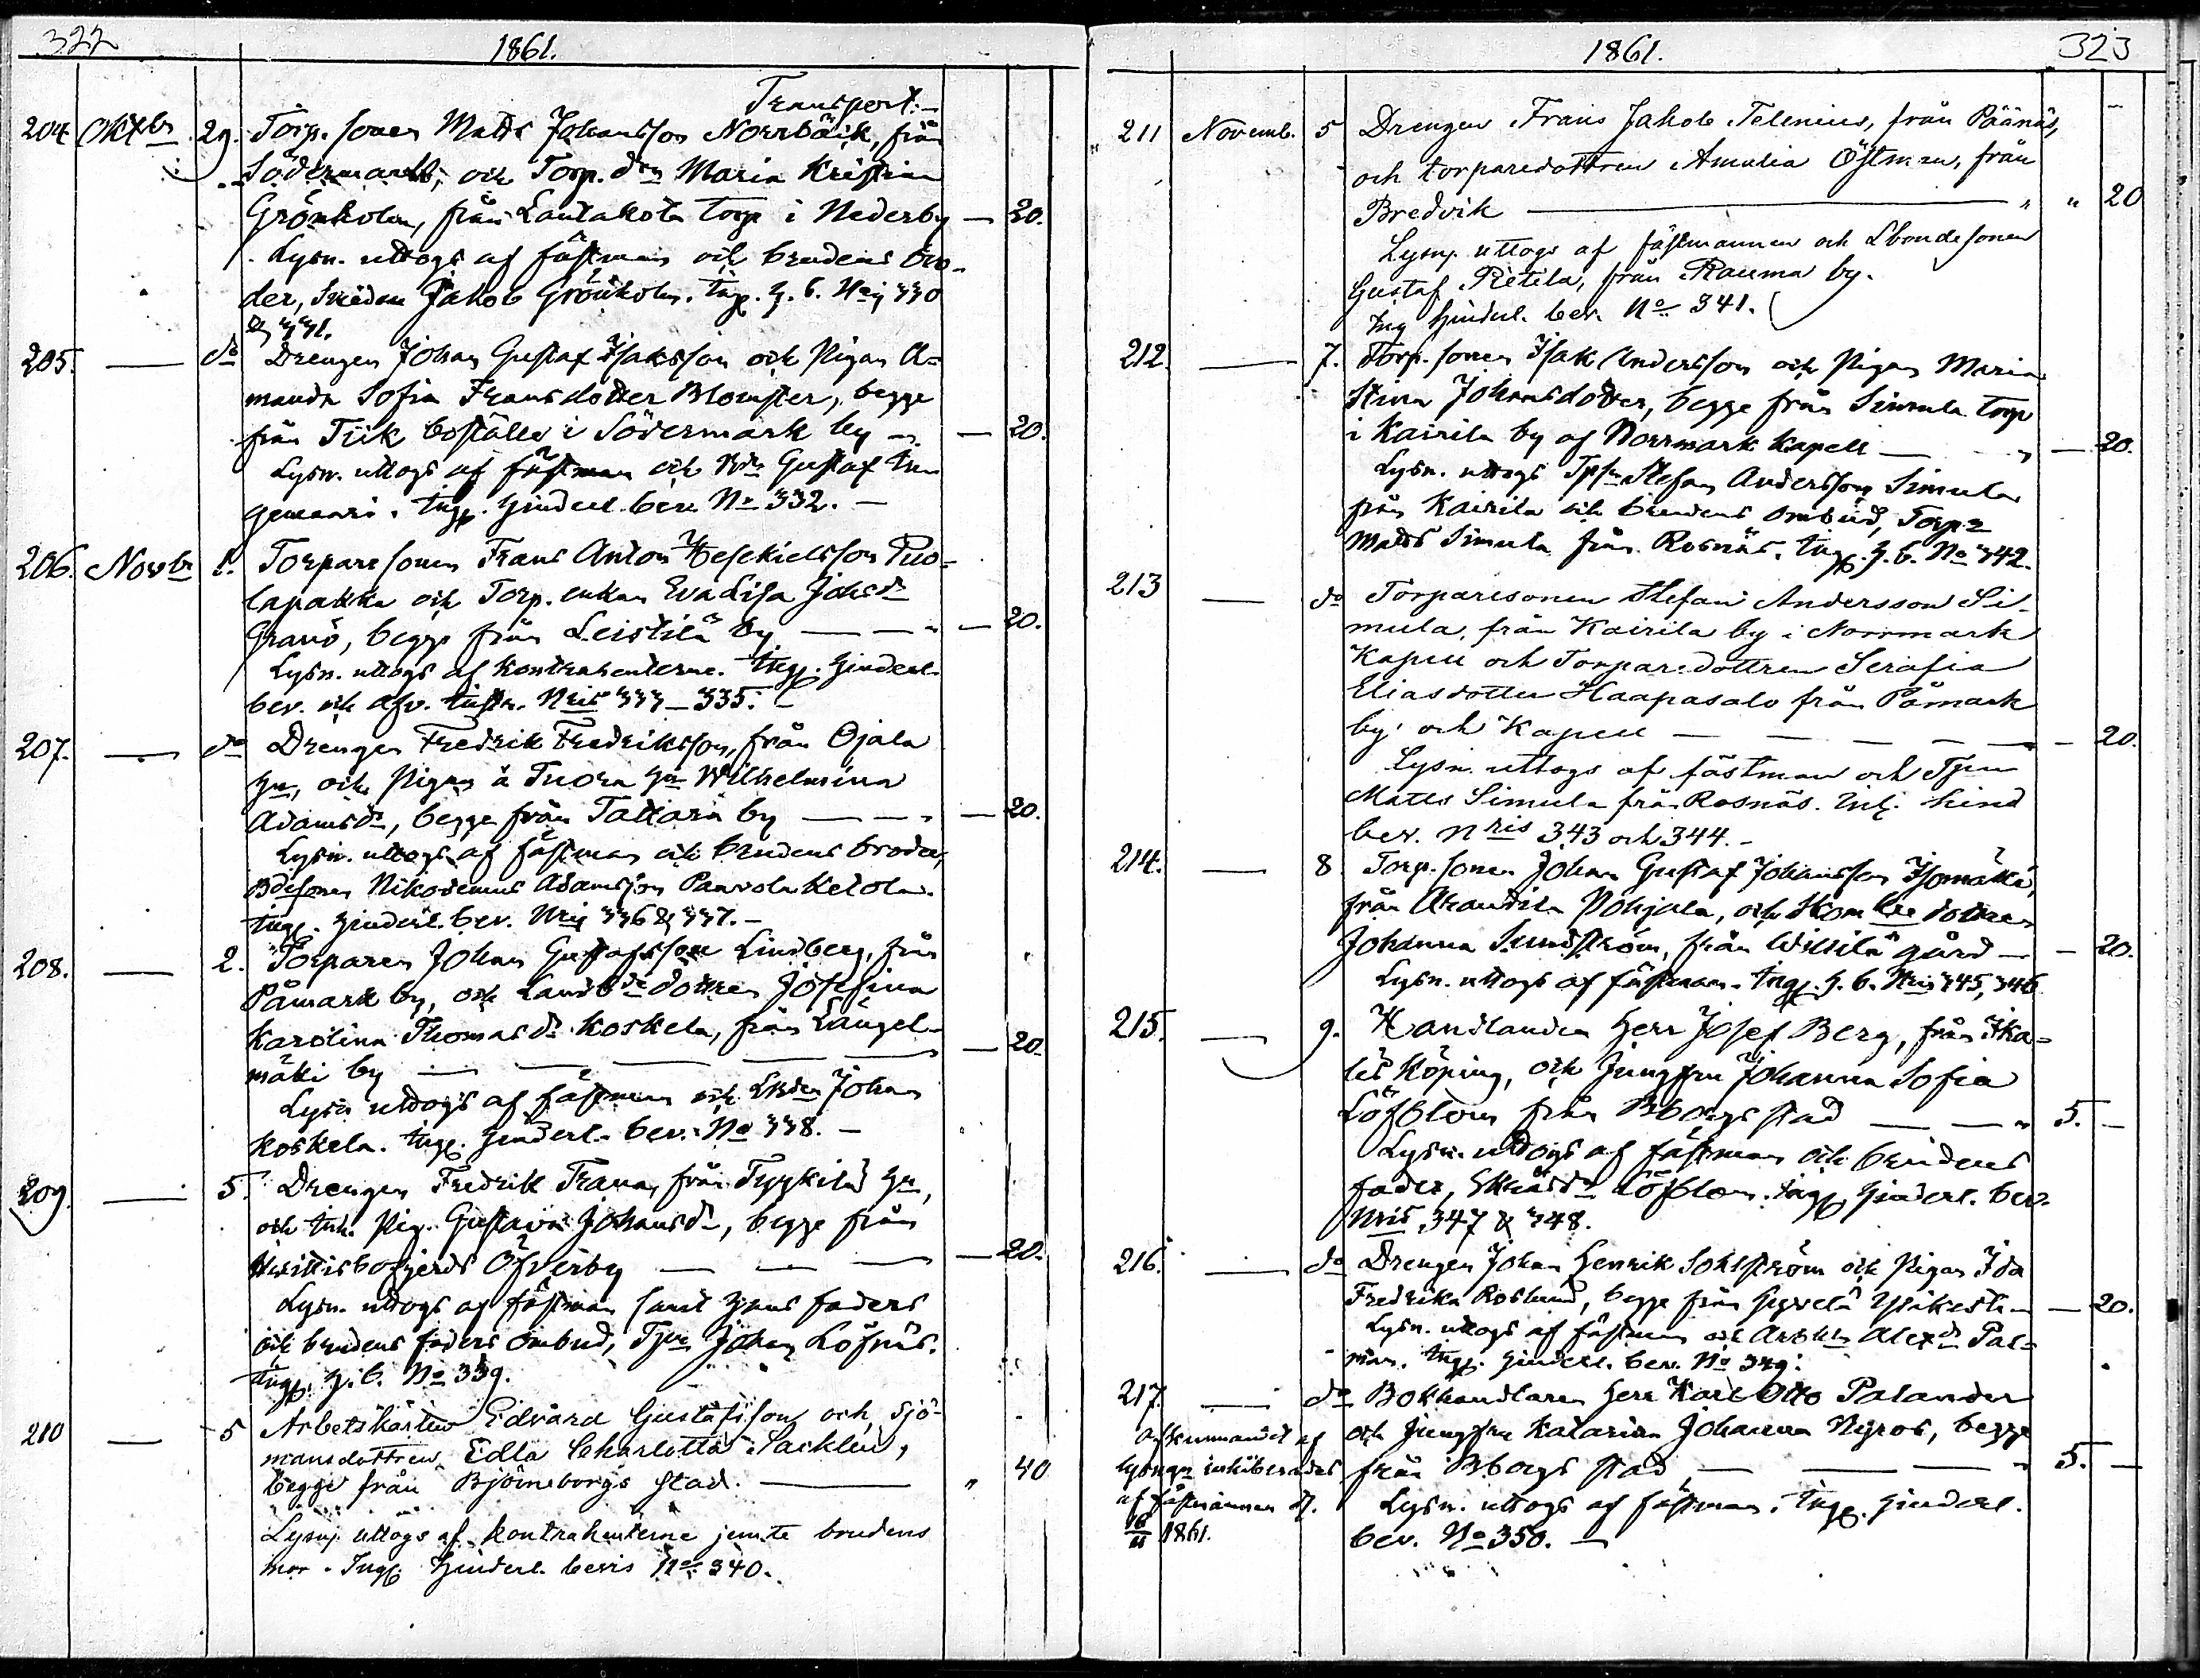 322
1861.
Transport.
204 Oktbr 29. Torp. sonen Matts Johansson Norrbäck, från
Södermark, och Torp. drn Maria Kristina
Grönholm, från Lautakota torp i Nederby — 20.
Lysn. uttogs af fästman och brudens bro-
der, Jakob Grönholm. Ingp. h. b. Nris 330
& 331.
205. — do Drengen Johan Gustaf Isaksson och Pigan A-
manda Sofia Fransdotter Blomster, begge
från Tiik boställe i Södermark by — 20.
Lysn. uttogs af fästman och Gustaf In-
gemari. Ingp. hinderl. bev. No 332. —
206. Novbr 1. Torparesonen Frans Anton Hesekielsson Puo-
lapakka och Torp. enkan Eva Lisa Johsdr
Granö, begge från Leistilä by — — — 20.
Lysn. uttogs af kontrahenterne. Ingp. hinderl.
bev. och afv. Nris 333–335.
207. — do Drengen Fredrik Fredriksson, från Ojala
hn, och Pigan å Tuora hn Wilhelmina
Adamsdr, begge från Tattara by — — — 20.
Lysn. uttogs af fästman och brudens broder,
Bdesonen Nikodemus Adamsson Paavola Ketola.
Ingp. hinderl. bev. Nris 336 & 337. —
208. — 2. Torparen Johan Gustafsson Lindberg, från
Påmark by, och Landbdedottren Josefina
Karolina Thomasdr Koskela, från Längel-
mäki by — — — — 20.
Lysn uttogs af fästman och Lbden Johan
Koskela. Ingp. hinderl. bev. No 338. —
209. — 5. Drengen Fredrik Frana, från Tyykilä hn,
och Inh. Pig. Gustava Johansdr, begge från
Hvittisbofjerds Öfverby — — — 20.
Lysn. uttogs af fästman samt hans faders
och brudens faders ombud, Johan Löfnäs.
Ingp. h. b. No 339.
210 — 5 Arbetskarlen Edvard Gustafsson och sjö-
mansdottren Edla Charlotta Sacklén,
begge från Björneborgs stad. — " 40
Lysng uttogs af kontrahenterne jemte brudens
mor. Ingp. Hinderl. bevis No 340.
1861.
323
211 Novemb. 5 Drengen Frans Jakob Telenius, från Päänäs,
och torparedottren Amalia Östman, från
Bredvik — " " 20
Lysng uttogs af fästmannen och Lbondesonen
Gustaf Pietila, från Rauma by.
Ing hinderl. bev. No 341.
212. — 7. Torp. sonen Isak Andersson och Pigan Maria
Stina Johansdotter, begge från Simula torp
i Kairila by af Norrmark kapell — — 20.
Lysn. uttogs Stefan Andersson Simula
från Kairila och brudens ombud, Torp.
Matts Simula från Rosnäs. Ingp. h. b. No 342.
213 — do Torparesonen Stefan Andersson Si-
mula, från Kairila by i Norrmark
Kapell och Torparedottren Serafia
Eliasdotter Haapasalo från Påmark
by och Kapell — — — — 20.
Lysn. uttogs af fästman och
Matts Simula från Rosnäs. Ing. hind
bev. Nris 343 och 344. —
214. — 8 Torp. sonen Johan Gustaf Johansson Isomäki,
från Pohjala, och
Johanna Sundström, från Willilä gård — — 20.
Lysn. uttogs af fästman. Ingp. h. b. Nris 345, 346
215. — 9. Handlanden Herr Josef Berg, från Ika-
lis Köping, och Jungfru Johanna Sofia
Löfblom från Bborgs stad — — 5. —
Lysn. uttogs af fästman och brudens
fader, Löfblom. Ingp. hinderl. bev.
Nris 347 & 348.
216. — do Drengen Johan Henrik Sohlström och Pigan Ida
Fredrika Roslund, begge från — 20.
Lysn. uttogs af fästman och Alexdr Pal-
man. Ingp. hinderl. bev. No 349.
217. — do Bokhandlaren Herr Karl Otto Palander
och Jungfru Katarina Johanna Nyros, begge
från Bborgs stad — — — 5. —
Lysn. uttogs af fästman. Ingp. hinderl.
bev. No 350. —
af
lysngn inhiberades
af fästmannen d.
16/11 1861.